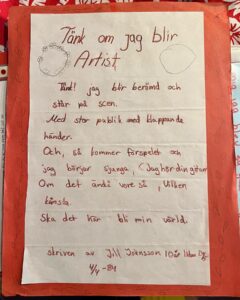 Tänk om jag blir
Artist.
Tänk! jag blir berömd och
står på scen.
Med stor publik med klappande
händer.
Och, så kommer förspelet och
jag börjar sjunga, (Jag hör din gitarr
Om det ändå vore så, Vilken
känsla.
Ska det här bli min värld.
skriven av Jill Johnsson 10 år
4/4-84